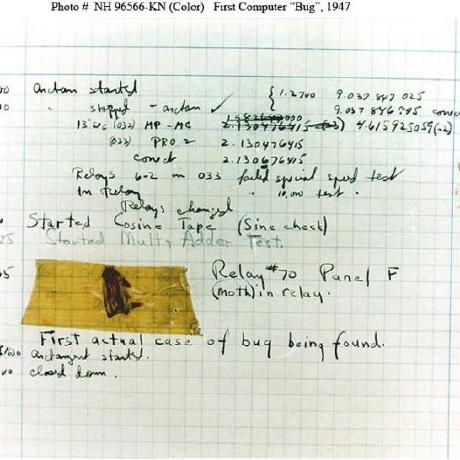 Photo # NH 96566-KN (Color) First Computer “Bug”, 1947
00 arctan started { 1.2700 9.037 847 025
00 " stopped - arctan ✓ 9.037 846 795 conect
13"uc (032) MP - MC 2.130476415 (-3) 4.615925059(-2)
(033) PRO 2 2.130476415
conect 2.130676415
Relays 6-2 in 033 failed special speed test
In Relay " 10.000 test .
Relays changed
Started Cosine Tape (Sine check)
25 Started Mult + Adder Test.
45 Relay #70 Panel F
(moth) in relay.
First actual case of bug being found.
1630 arctangent started.
00 closed down .